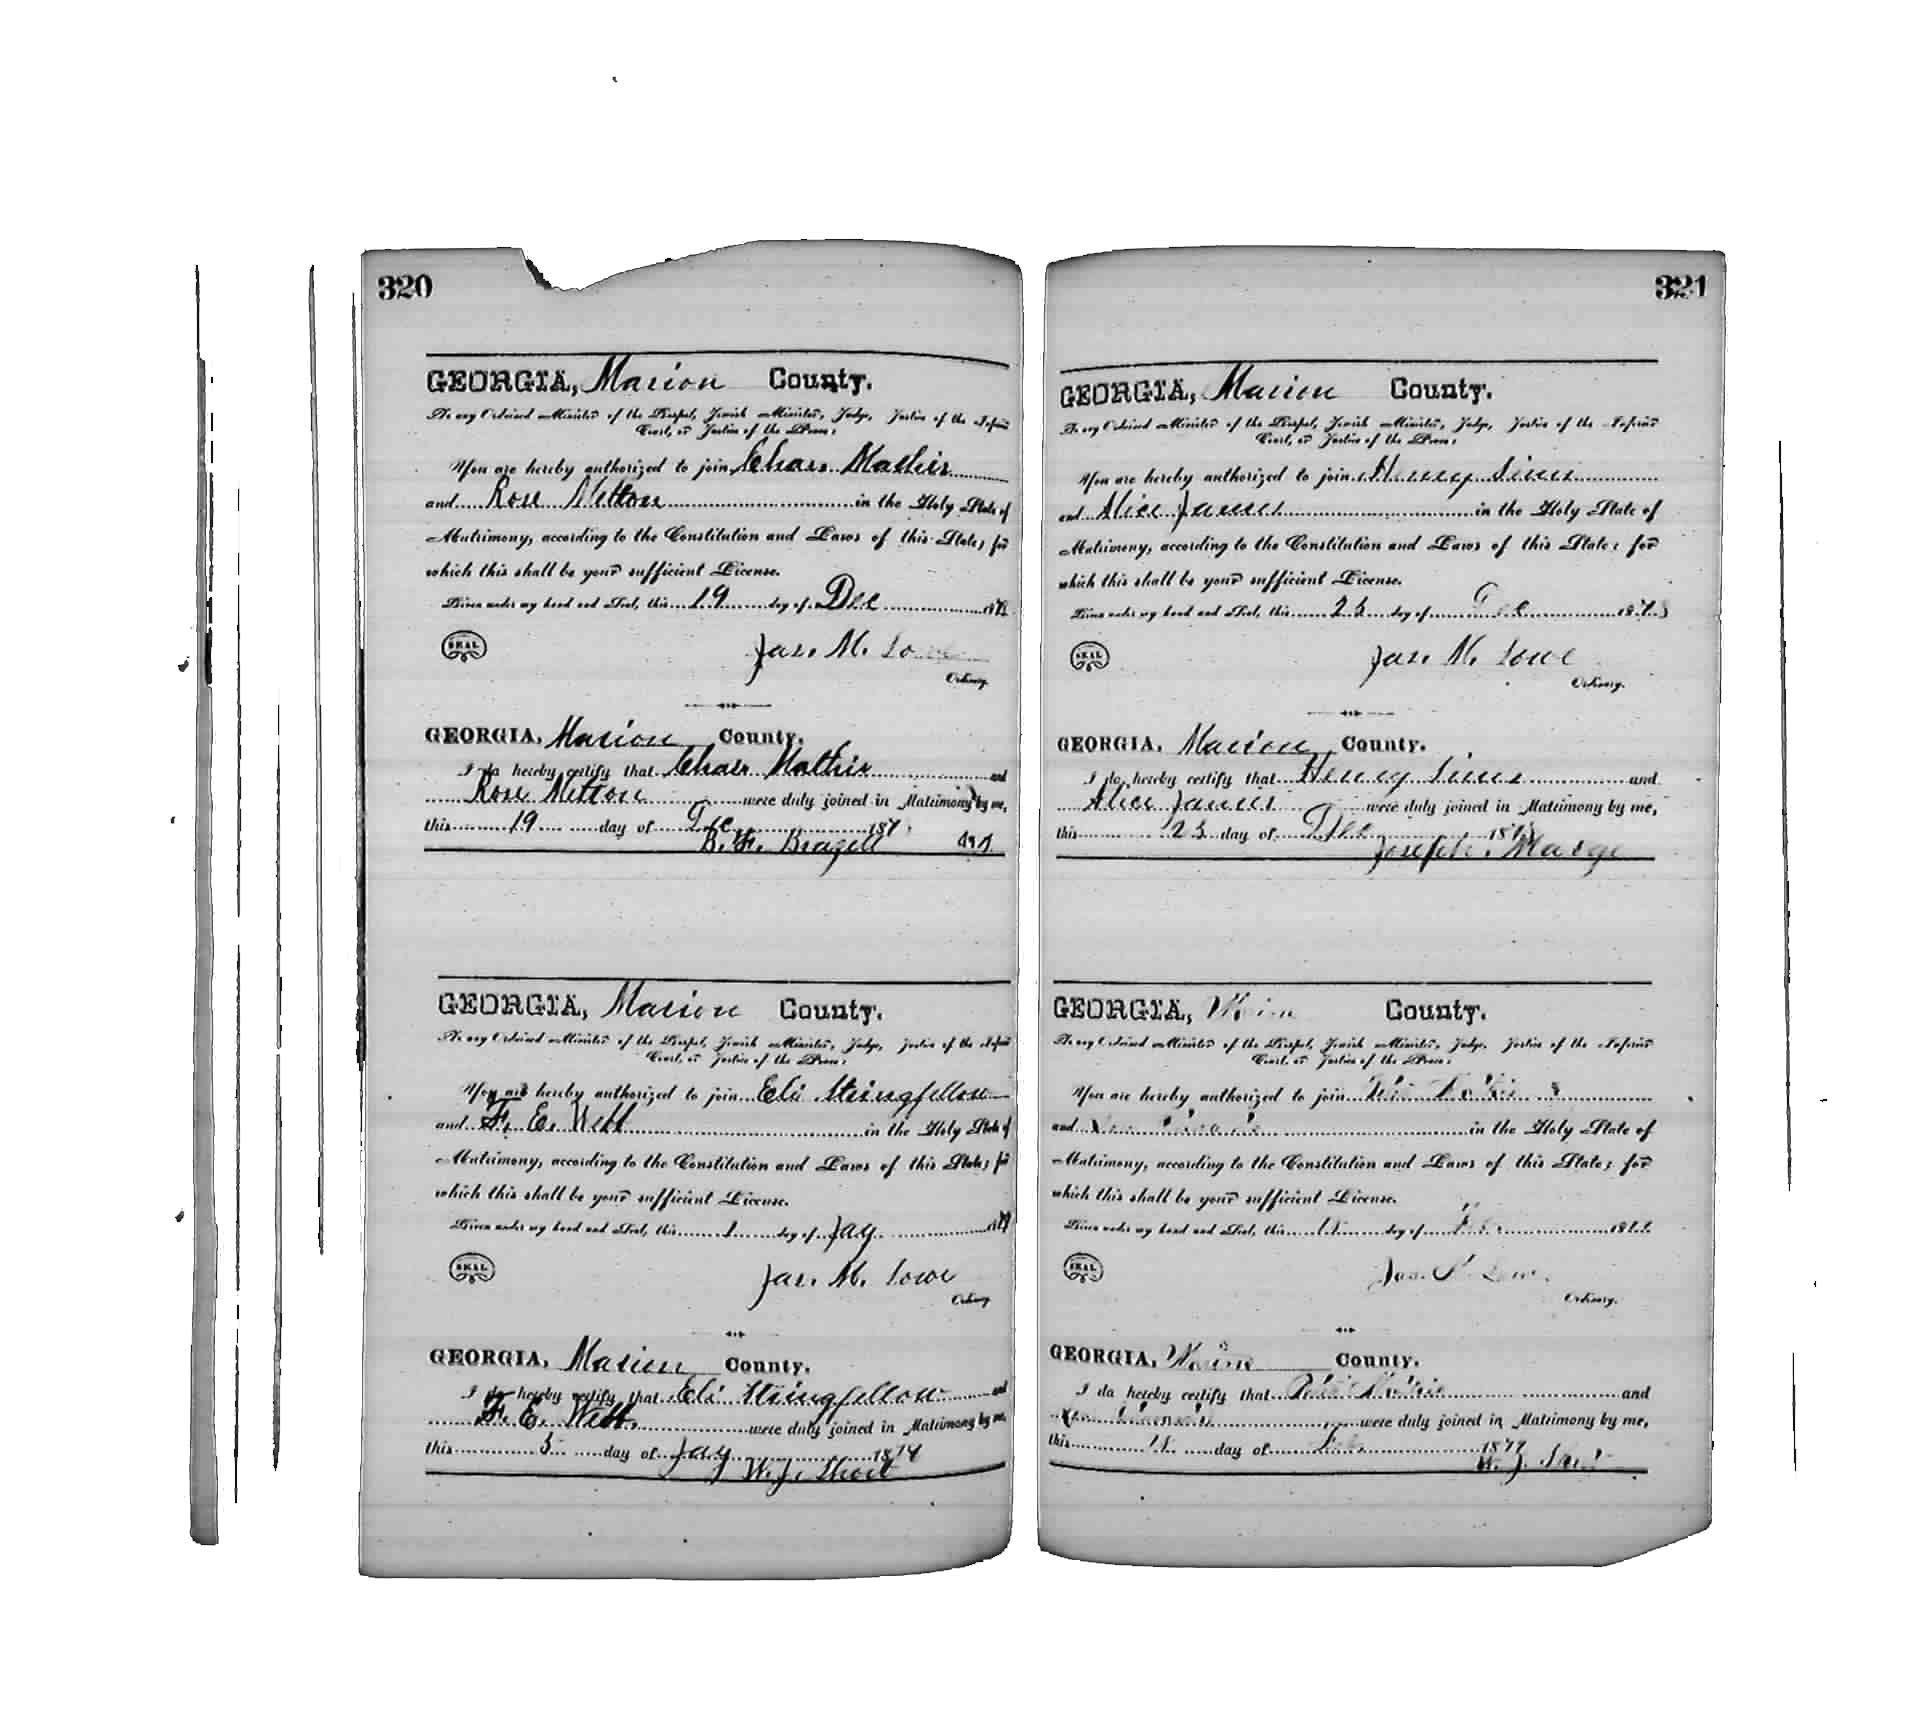 320
GEORGIA, Marion County.
To any Ordained Minister of the Gospel, Jewish Minister, Judge, Justice of the Inferior
Court, or Justice of the Peace:
You are hereby authorized to join Chas. Mathis
and Rose Melton in the Holy State of
Matrimony, according to the Constitution and Laws of this State; for
which this shall be your sufficient License.
Given under my hand and Seal, this 19 day of Dec 187
SEAL
Jas. M. Lowe
Ordinary.
GEORGIA, Marion County.
I do hereby certify that Chas Mathis and
Rose Melton were duly joined in Matrimony by me,
this 19 day of Dec 187
B. F. Brazell
GEORGIA, Marion County.
To any Ordained Minister of the Gospel, Jewish Minister, Judge, Justice of the Inferior
Court, or Justice of the Peace:
You are hereby authorized to join Eli Stringfellow
and F. E. Webb in the Holy State of
Matrimony, according to the Constitution and Laws of this State; for
which this shall be your sufficient License.
Given under my hand and Seal, this 1 day of Jay 187
SEAL
Jas. M. Lowe
Ordinary.
GEORGIA, Marion County.
I do hereby certify that Eli Stringfellow and
F. E. Webb were duly joined in Matrimony by me,
this 5 day of Jay 1879
W. J. Short
321
GEORGIA, Marion County.
To any Ordained Minister of the Gospel, Jewish Minister, Judge, Justice of the Inferior
Court, or Justice of the Peace:
You are hereby authorized to join Henry Sims
and Alice James in the Holy State of
Matrimony, according to the Constitution and Laws of this State; for
which this shall be your sufficient License.
Given under my hand and Seal, this 23 day of Dec 1878
SEAL
Jas. M. Lowe
Ordinary.
GEORGIA, Marion County.
I do hereby certify that Henry Sims and
Alice James were duly joined in Matrimony by me,
this 23 day of Dec 1878
Joseph
GEORGIA, County.
To any Ordained Minister of the Gospel, Jewish Minister, Judge, Justice of the Inferior
Court, or Justice of the Peace:
You are hereby authorized to join
and in the Holy State of
Matrimony, according to the Constitution and Laws of this State; for
which this shall be your sufficient License.
Given under my hand and Seal, this day of 187
SEAL
Jas. Lowe
Ordinary.
GEORGIA, County.
I do hereby certify that and
were duly joined in Matrimony by me,
this day of 1879
W. J.